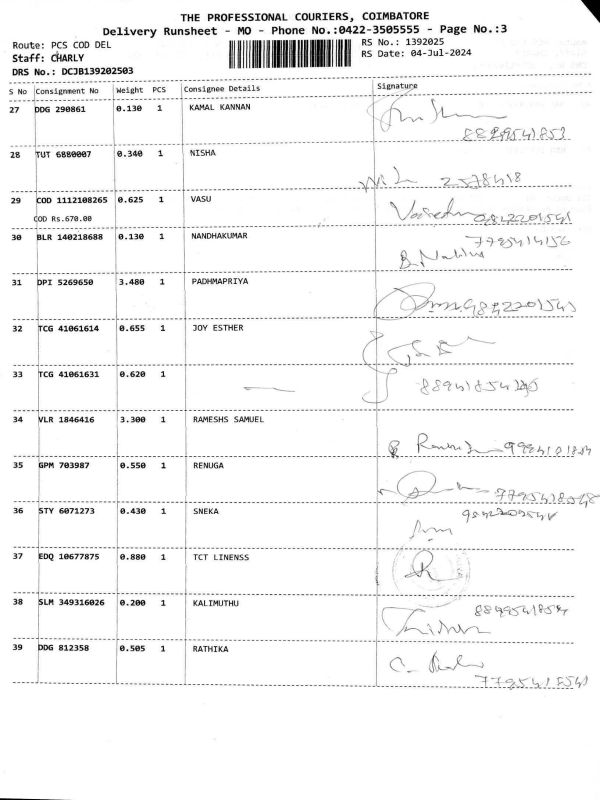 THE PROFESSIONAL COURIERS, COIMBATORE
Delivery Runsheet - MO - Phone No.:0422-3505555 - Page No.:3
Route: PCS COD DEL
RS No.: 1392025
Staff: CHARLY
RS Date: 04-Jul-2024
DRS No.: DCJB139202503
S No Consignment No Weight PCS Consignee Details Signature
27 DDG 290861 0.130 1 KAMAL KANNAN
28 TUT 6880007 0.340 1 NISHA
2578418
29 COD 1112108265 0.625 1 VASU
COD Rs.670.00
30 BLR 140218688 0.130 1 NANDHAKUMAR
31 DPI 5269650 3.480 1 PADHMAPRIYA
32 TCG 41061614 0.655 1 JOY ESTHER
33 TCG 41061631 0.620 1
34 VLR 1846416 3.300 1 RAMESHS SAMUEL
35 GPM 703987 0.550 1 RENUGA
36 STY 6071273 0.430 1 SNEKA
37 EDQ 10677875 0.880 1 TCT LINENSS
38 SLM 349316026 0.200 1 KALIMUTHU
39 DDG 812358 0.505 1 RATHIKA